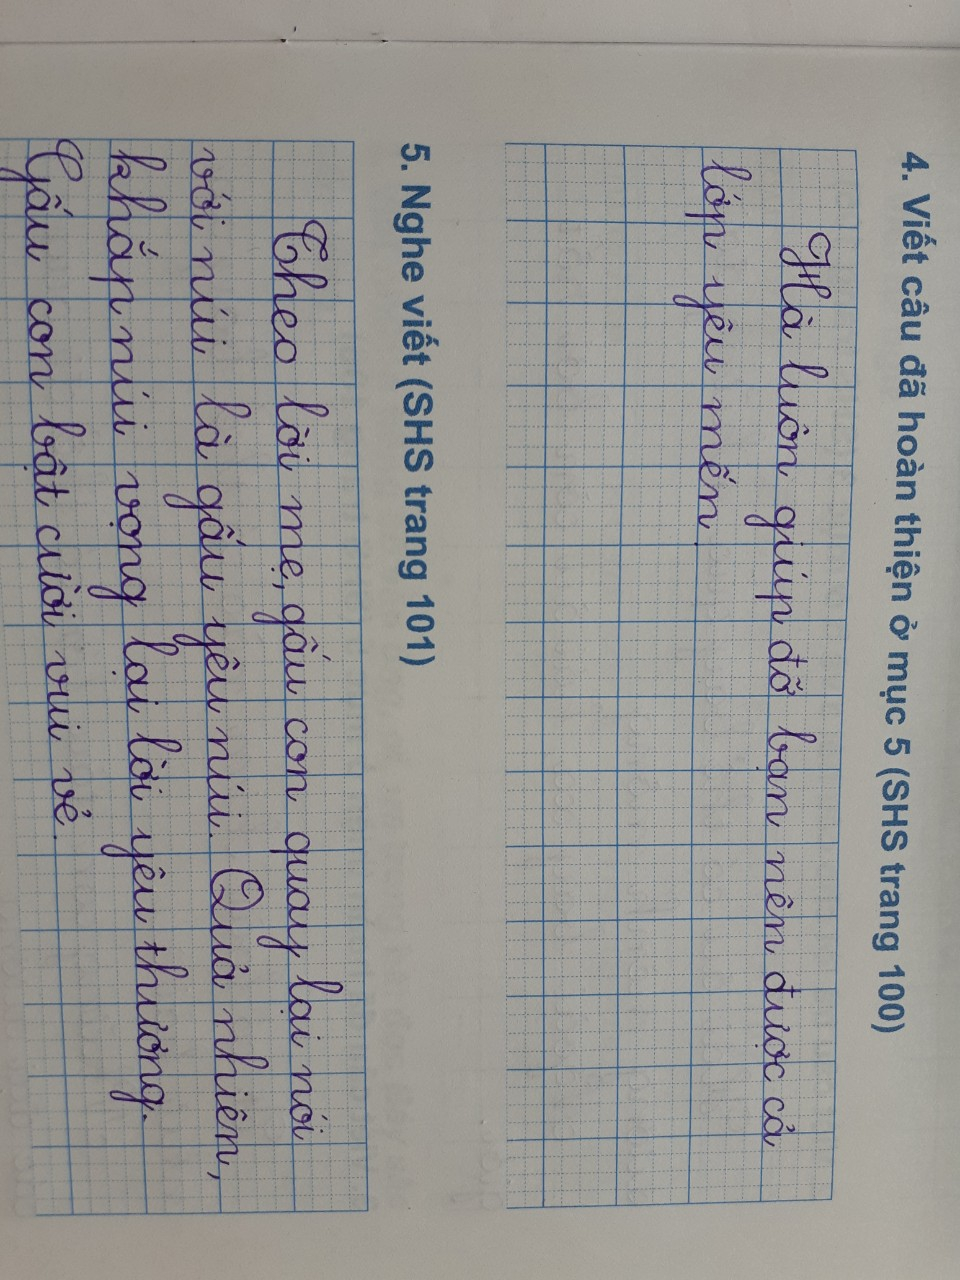 4. Viết câu đã hoàn thiện ở mục 5 (SHS trang 100)
Hà luôn giúp đỡ bạn nên được cả
lớp yêu mến.
5. Nghe viết (SHS trang 101)
Theo lời mẹ, gấu con quay lại nói
với núi là gấu yêu núi. Quả nhiên,
khắp núi vọng lại lời yêu thương.
Gấu con bật cười vui vẻ.